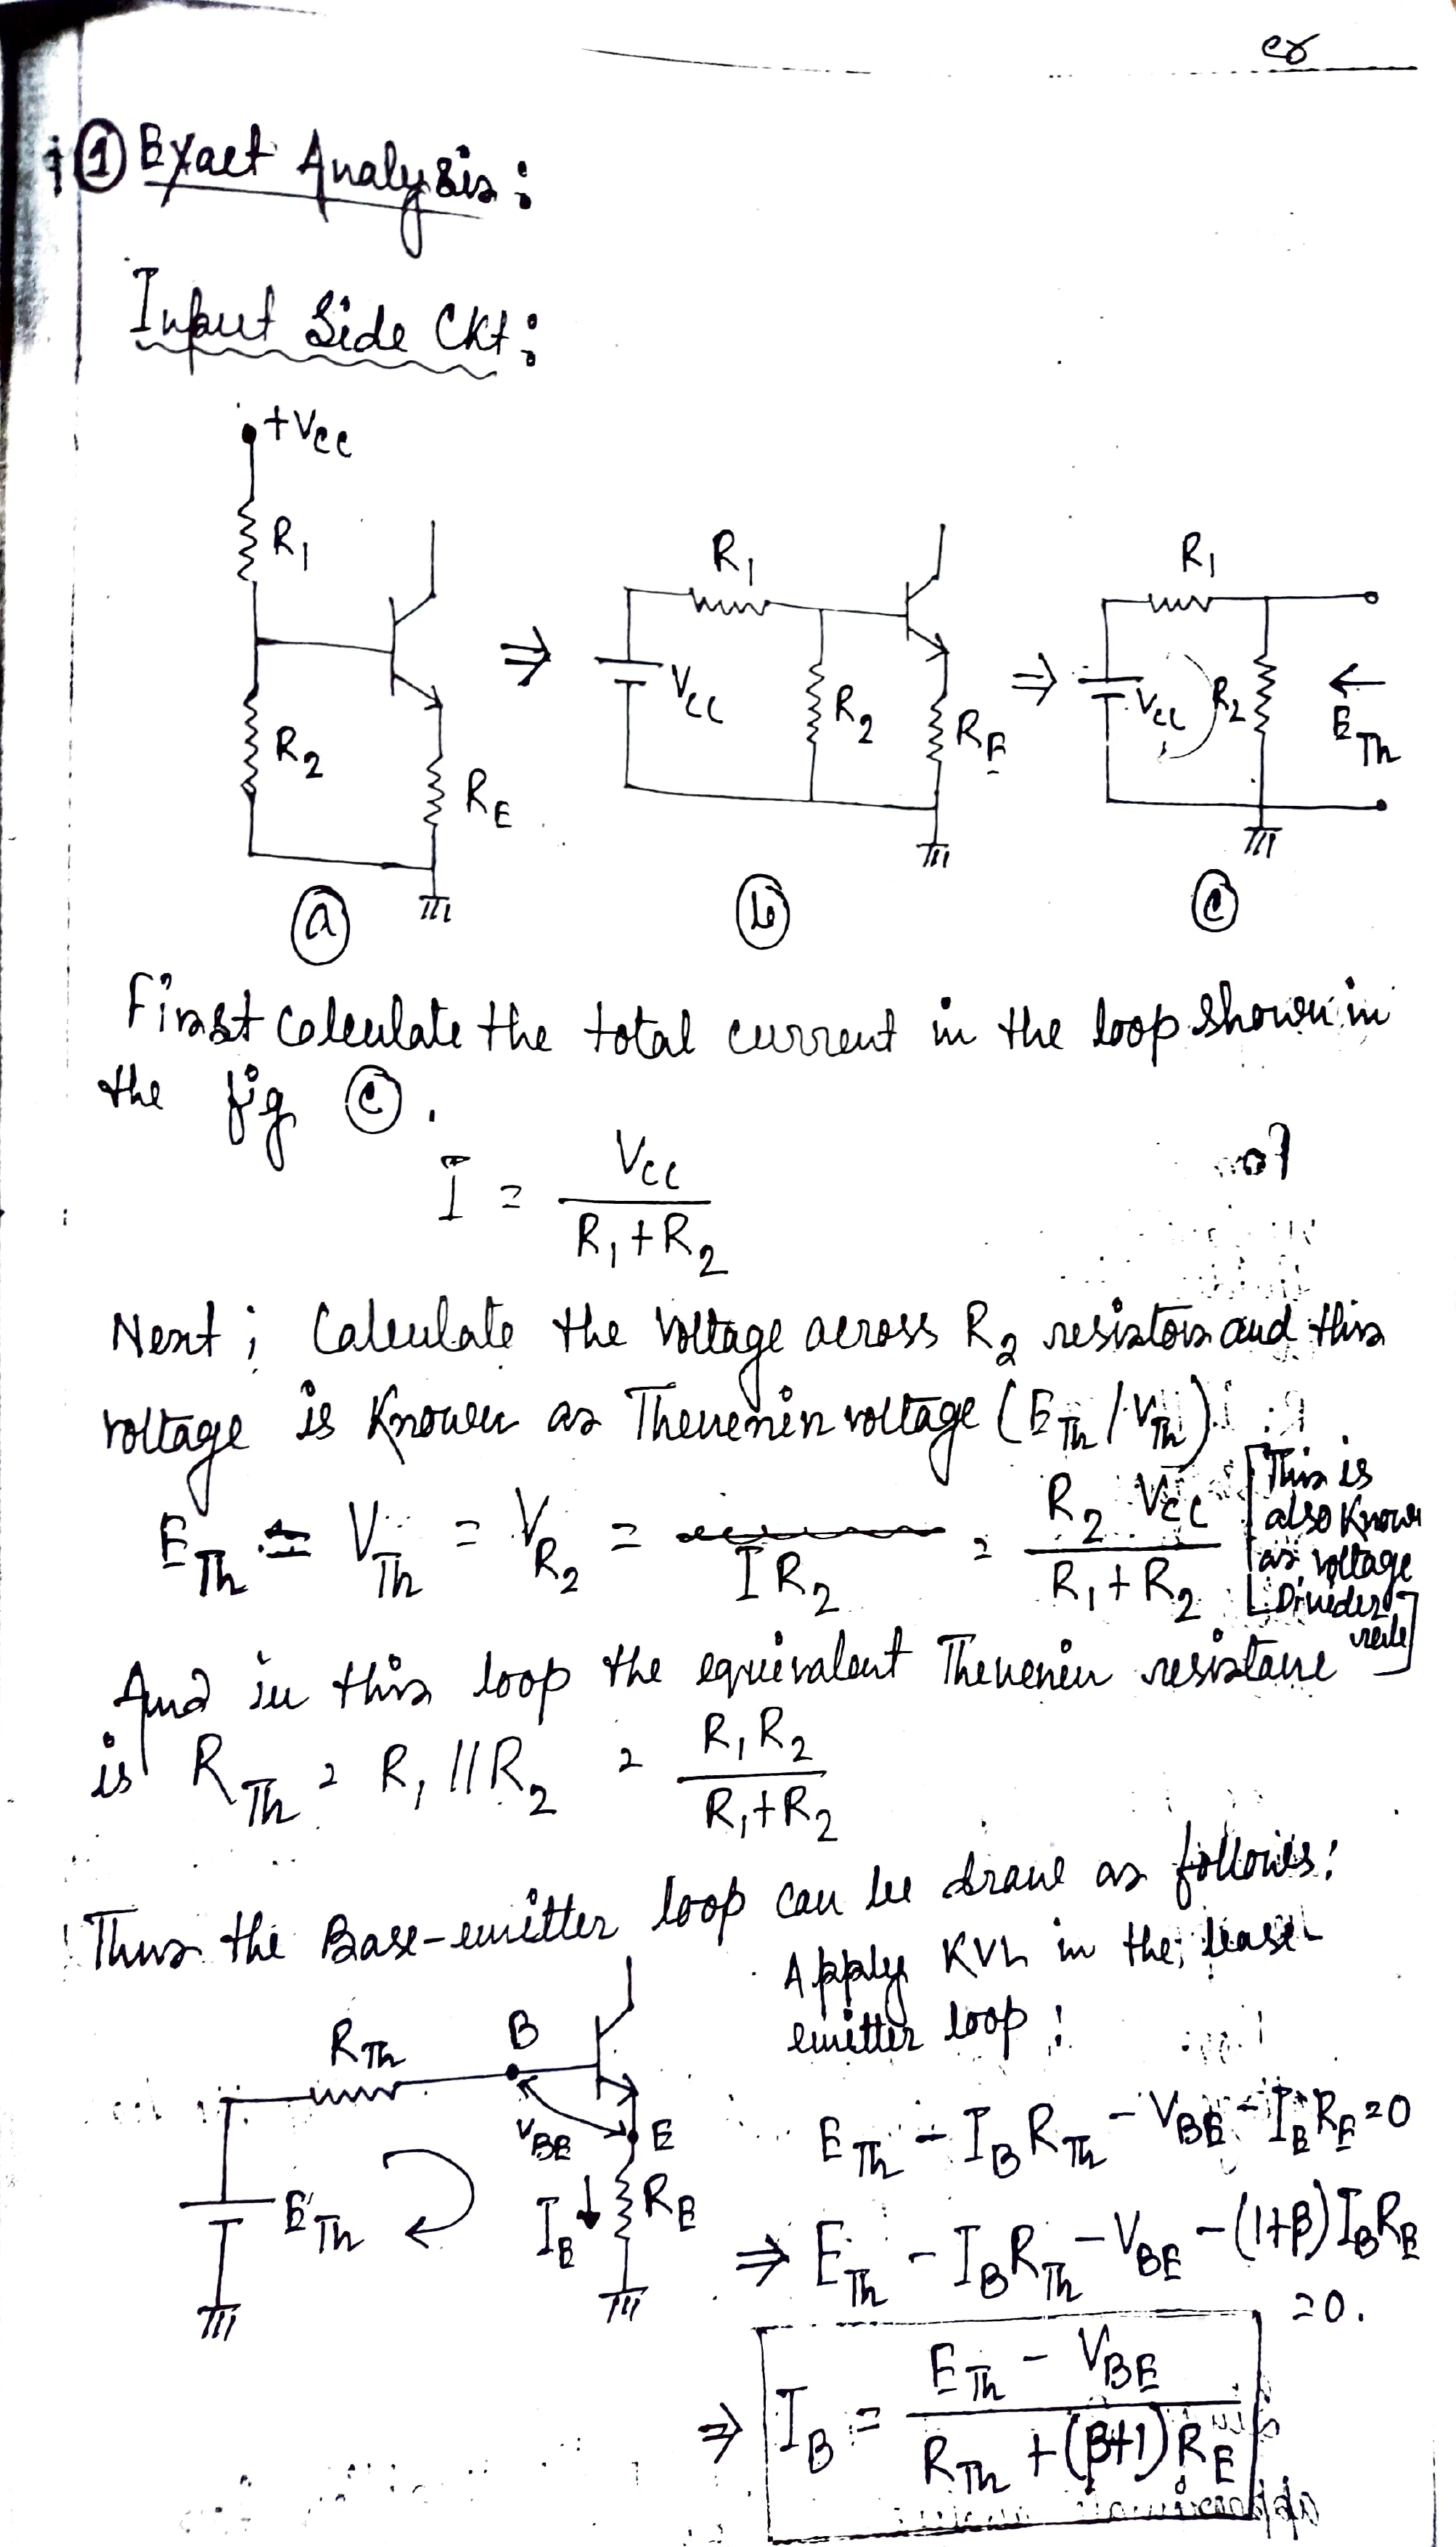 ① Exact Analysis:
Input Side Ckt:
+VCC
R1
R2
RE
ⓐ
R1
VCC
R2
RE
ⓑ
R1
VCC
R2
ETh
ⓒ
First calculate the total current in the loop shown in
the fig ⓒ.
I = VCC / (R1+R2)
Next; Calculate the voltage across R2 resistor and this
voltage is Known as Thevenin voltage (ETh / VTh).
ETh = VTh = VR2 = IR2 = R2 VCC / (R1+R2)
[This is
also Known
as voltage
Divider
rule]
And in this loop the equivalent Thevenin resistane
is RTh = R1 // R2 = R1R2 / (R1+R2)
Thus the Base-emitter loop can be draw as follows:
RTh
B
VBE
E
ETh
IE
RE
Apply KVL in the base-
emitter loop:
ETh - IBRTh - VBE - IERE = 0
⇒ ETh - IBRTh - VBE - (1+β) IBRE
= 0.
⇒ IB = (ETh - VBE) / (RTh + (β+1) RE)